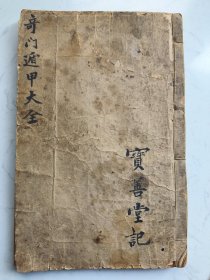 奇门遁甲大全
寶善堂記